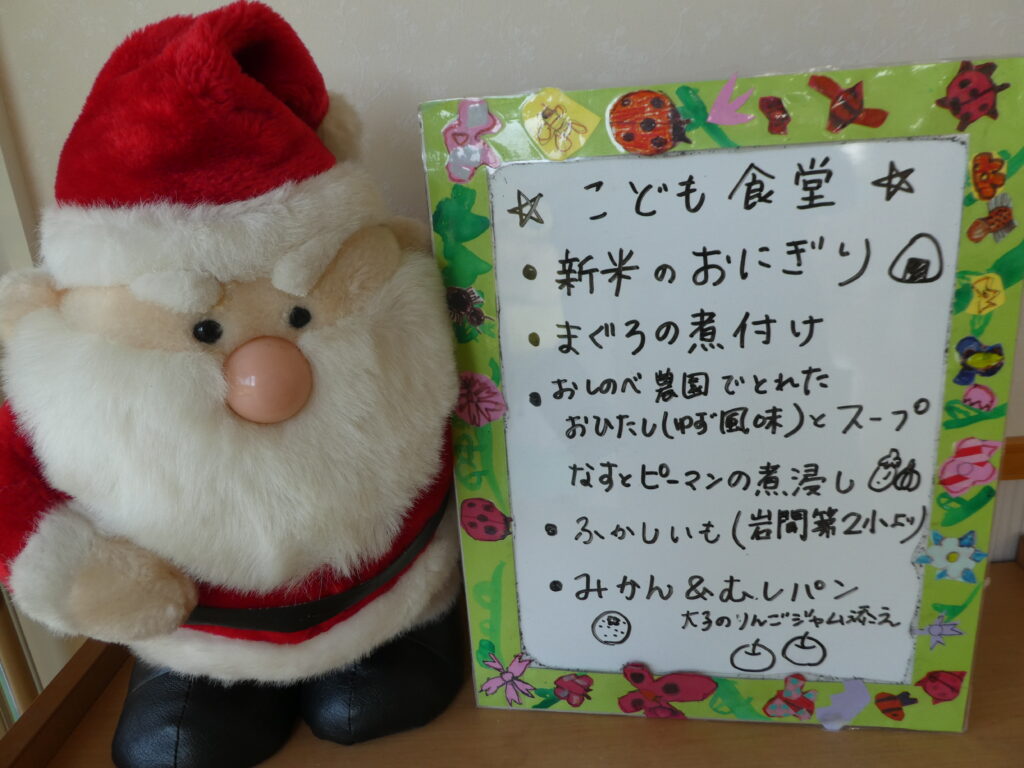 ☆ こども食堂 ☆
・新米のおにぎり
・まぐろの煮付け
・おしのべ農園でとれた
おひたし(ゆず風味)とスープ
なすとピーマンの煮浸し
・ふかしいも(岩間第2小より)
・みかん&むしパン
大子のりんごジャム添え